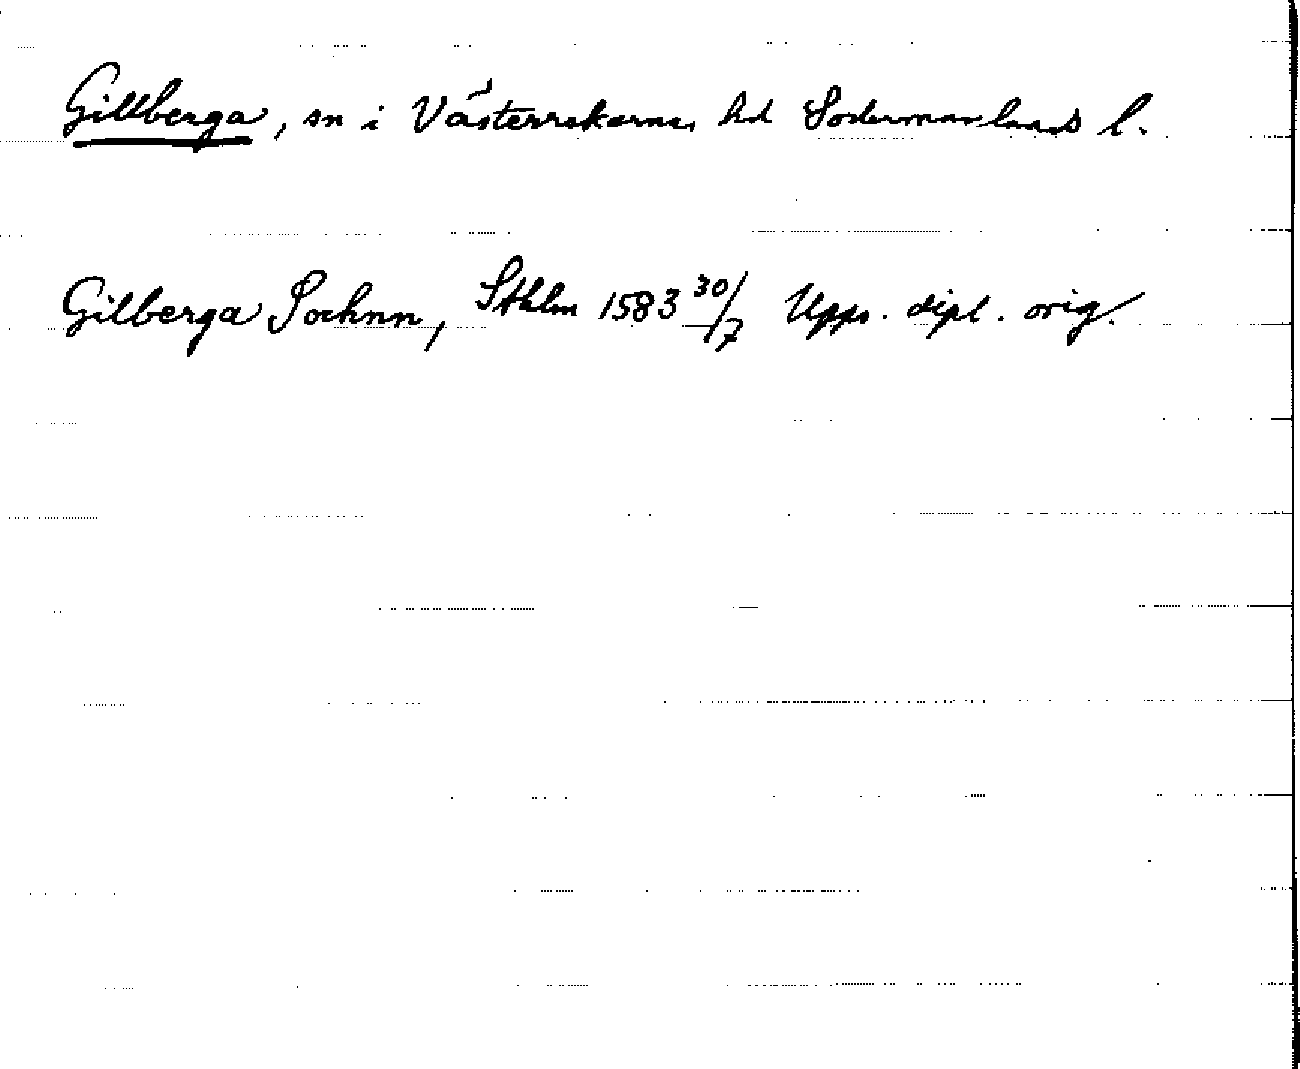 Gillberga, sn i Västerrekarne, hd Södermanlands l.
Gilberga Sochnn, Sthlm 1583 30/7 Upps. dipl. orig.